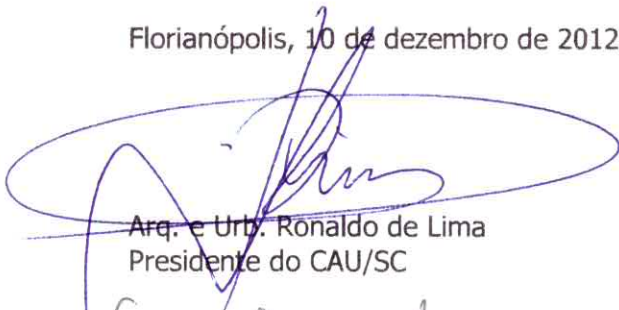 Florianópolis, 10 de dezembro de 2012
Arq. e Urb. Ronaldo de Lima
Presidente do CAU/SC